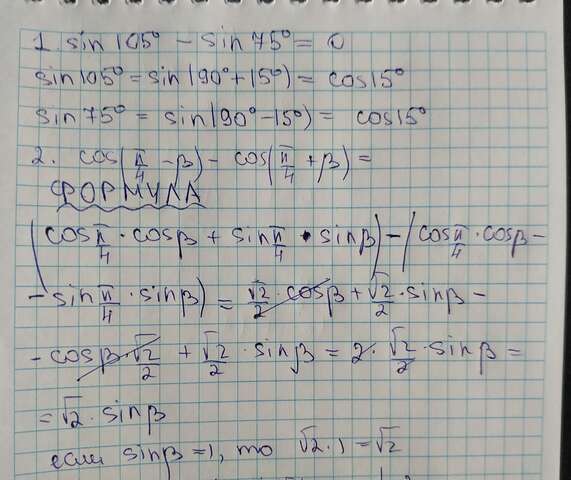 1. sin 105° − sin 75° = 0
sin 105° = sin(90° + 15°) = cos 15°
sin 75° = sin(90° − 15°) = cos 15°
2. cos(π/4 − β) − cos(π/4 + β) =
ФОРМУЛА
(cos π/4 · cosβ + sin π/4 · sinβ) − (cos π/4 · cosβ −
− sin π/4 · sinβ) = √2/2 · cosβ + √2/2 · sinβ −
− cosβ · √2/2 + √2/2 · sinβ = 2 · √2/2 · sinβ =
= √2 · sinβ
если sinβ = 1, то √2 · 1 = √2